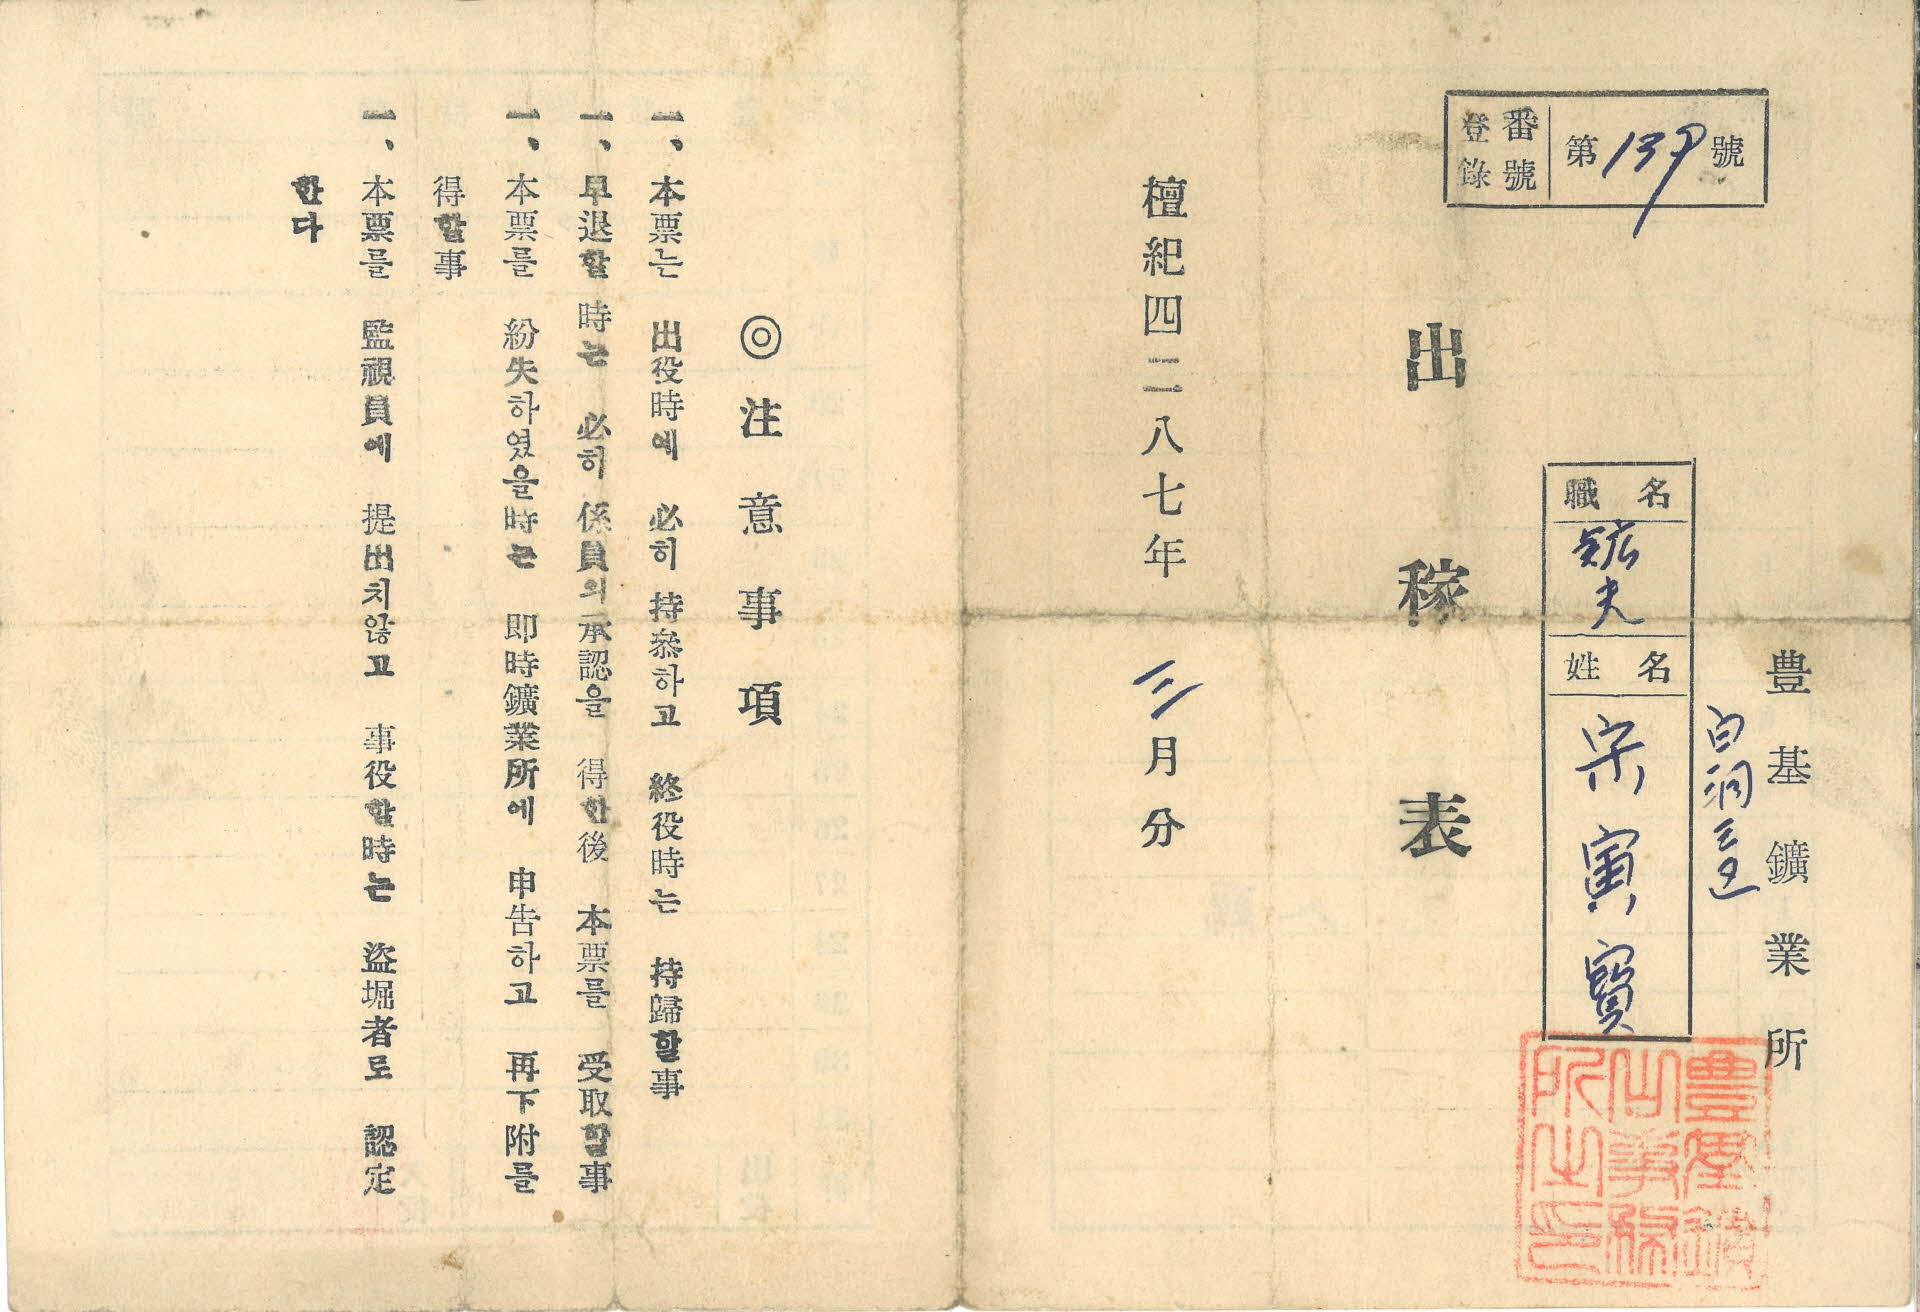 登錄番號 第137號
豊基鑛業所
白洞三區
職名
鉱夫
姓名
宋寅寶
出稼表
檀紀四二八七年 三月分
◎注意事項
一、本票는 出役時에 必히 持叅하고 終役時는 持歸할事
一、早退할 時는 必히 係員의 承認을 得한後 本票를 受取할事
一、本票를 紛失하였을時는 即時鑛業所에 申告하고 再下附를
得할事
一、本票를 監視員에 提出치않고 事役할時는 盜堀者로 認定
한다
豊基鑛
山事務
所之印